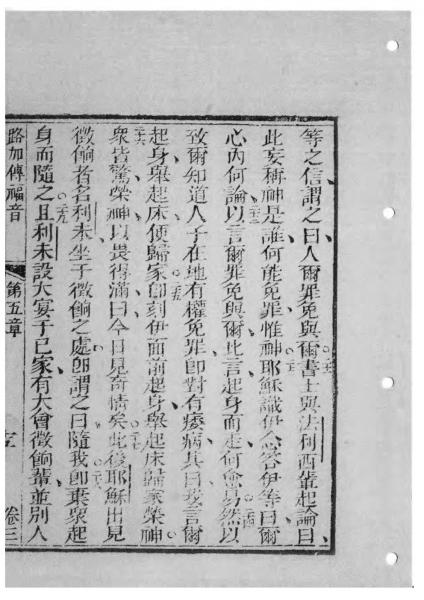 等之信謂之曰人爾罪免與爾書士與法利西輩起論曰
此妄稱神是誰何能免罪惟神耶穌識伊念答伊等曰爾
心內何論以言爾罪免與爾此言起身而走何會易然以
致爾知道人子在地有權免罪卽對有痿病其曰我言爾
起身舉起床便歸家卽刻伊面前起身舉起床歸家榮神
衆皆驚榮神以畏得滿曰今日見奇情矣此後耶穌出見
徵餉者名利未坐于徵餉之處卽謂之曰隨我卽棄衆起
身而隨之且利未設大宴于己家有大會徵餉輩並別人
路加傳福音 第五章 卷三